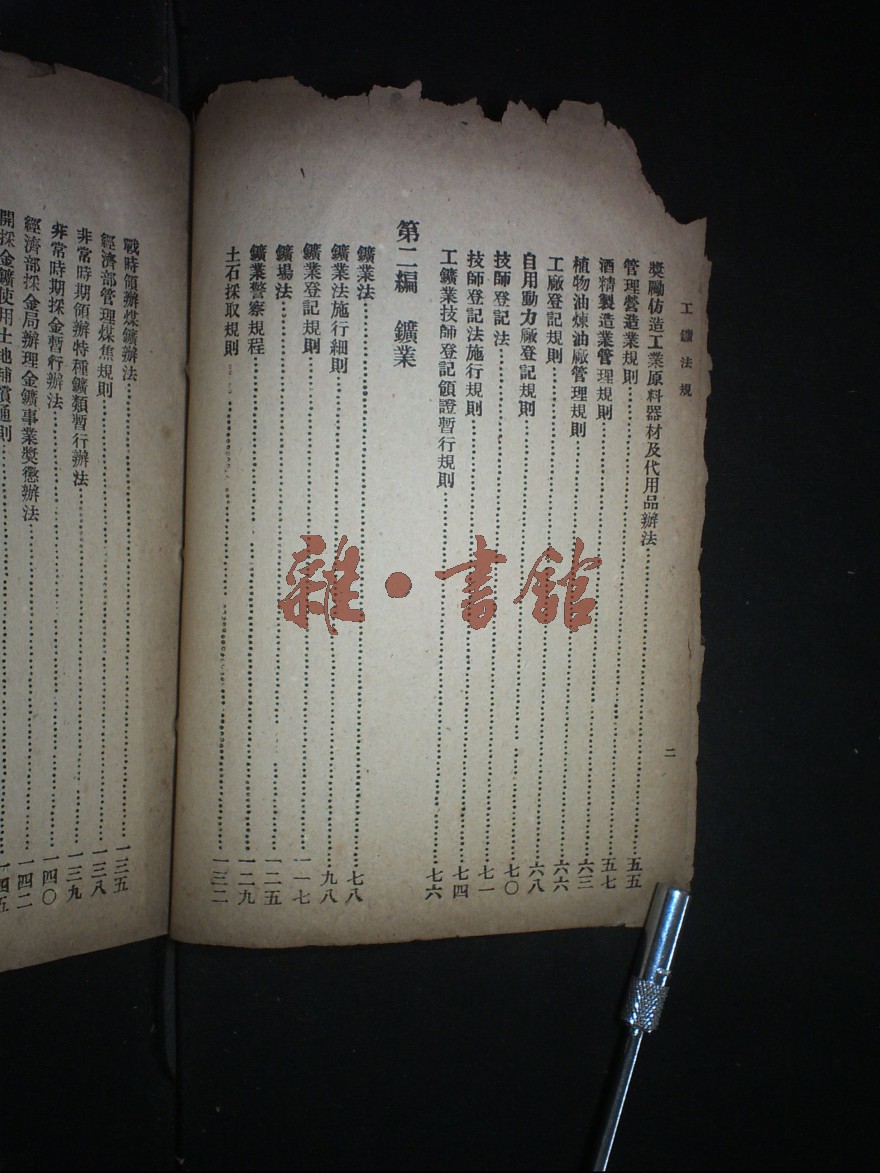 工鑛法規
二
獎勵仿造工業原料器材及代用品辦法……五五
管理營造業規則……五七
酒精製造業管理規則……六三
植物油煉油廠管理規則……六六
工廠登記規則……六八
自用動力廠登記規則……七〇
技師登記法……七一
技師登記法施行規則……七四
工鑛業技師登記領證暫行規則……七六
第二編 鑛業
鑛業法……七八
鑛業法施行細則……九八
鑛業登記規則……一一七
鑛場法……一二五
鑛業警察規程……一二九
土石採取規則……一三二
戰時領辦煤鑛辦法……一三五
經濟部管理煤焦規則……一三八
非常時期領辦特種鑛類暫行辦法……一三九
非常時期採金暫行辦法……一四〇
經濟部採金局辦理金鑛事業獎懲辦法……一四二
開採金鑛使用土地補償通則……一四五
雜·書館